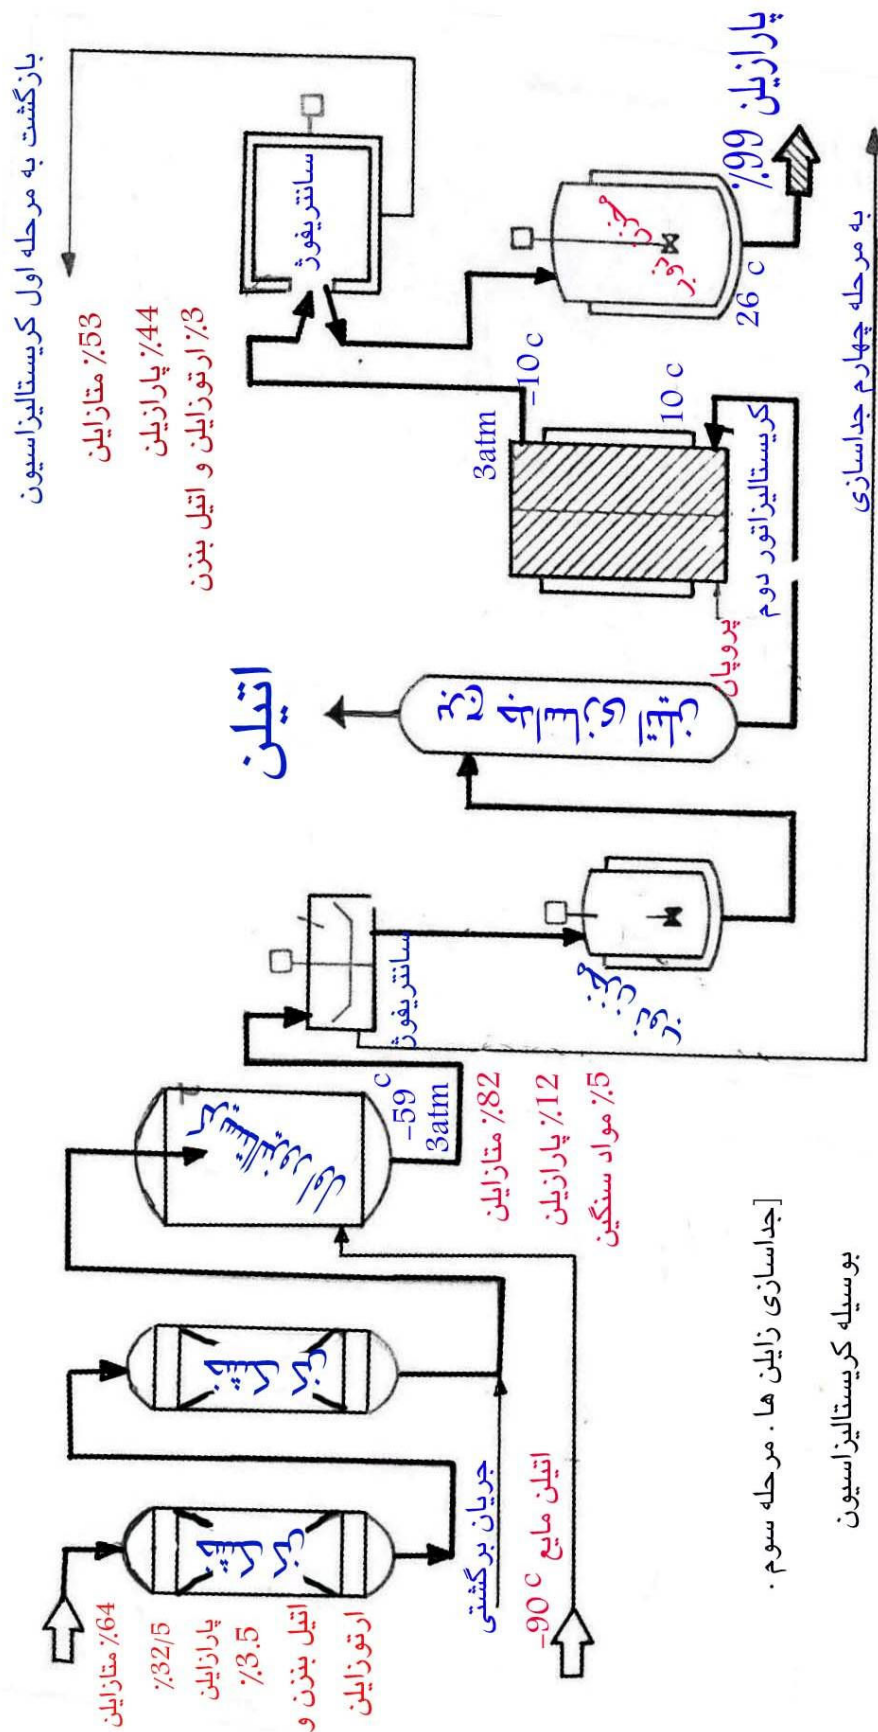 ٪64 متازایلن
٪32/5
پارازایلن
٪3.5
اتیل بنزن و
ارتوزایلن
خشک کن
خشک کن
جریان برگشتی
اتیلن مایع
-90 c
کریستالیزور اول
-59 c
3atm
٪82 متازایلن
٪12 پارازیلن
٪5 مواد سنگین
سانتریفوژ
مخزن ذوب
اتیلن
برج جداسازی اتیلن
پروپان
کریستالیزاتور دوم
3atm
-10 c
10 c
سانتریفوژ
مخزن ذوب
26 c
٪99 پارازیلن
به مرحله چهارم جداسازی
بازگشت به مرحله اول کریستالیزاسیون
٪53 متازایلن
٪44 پارازیلن
٪3 ارتوزایلن و اتیل بنزن
[جداسازی زایلن ها . مرحله سوم .
بوسیله کریستالیزاسیون